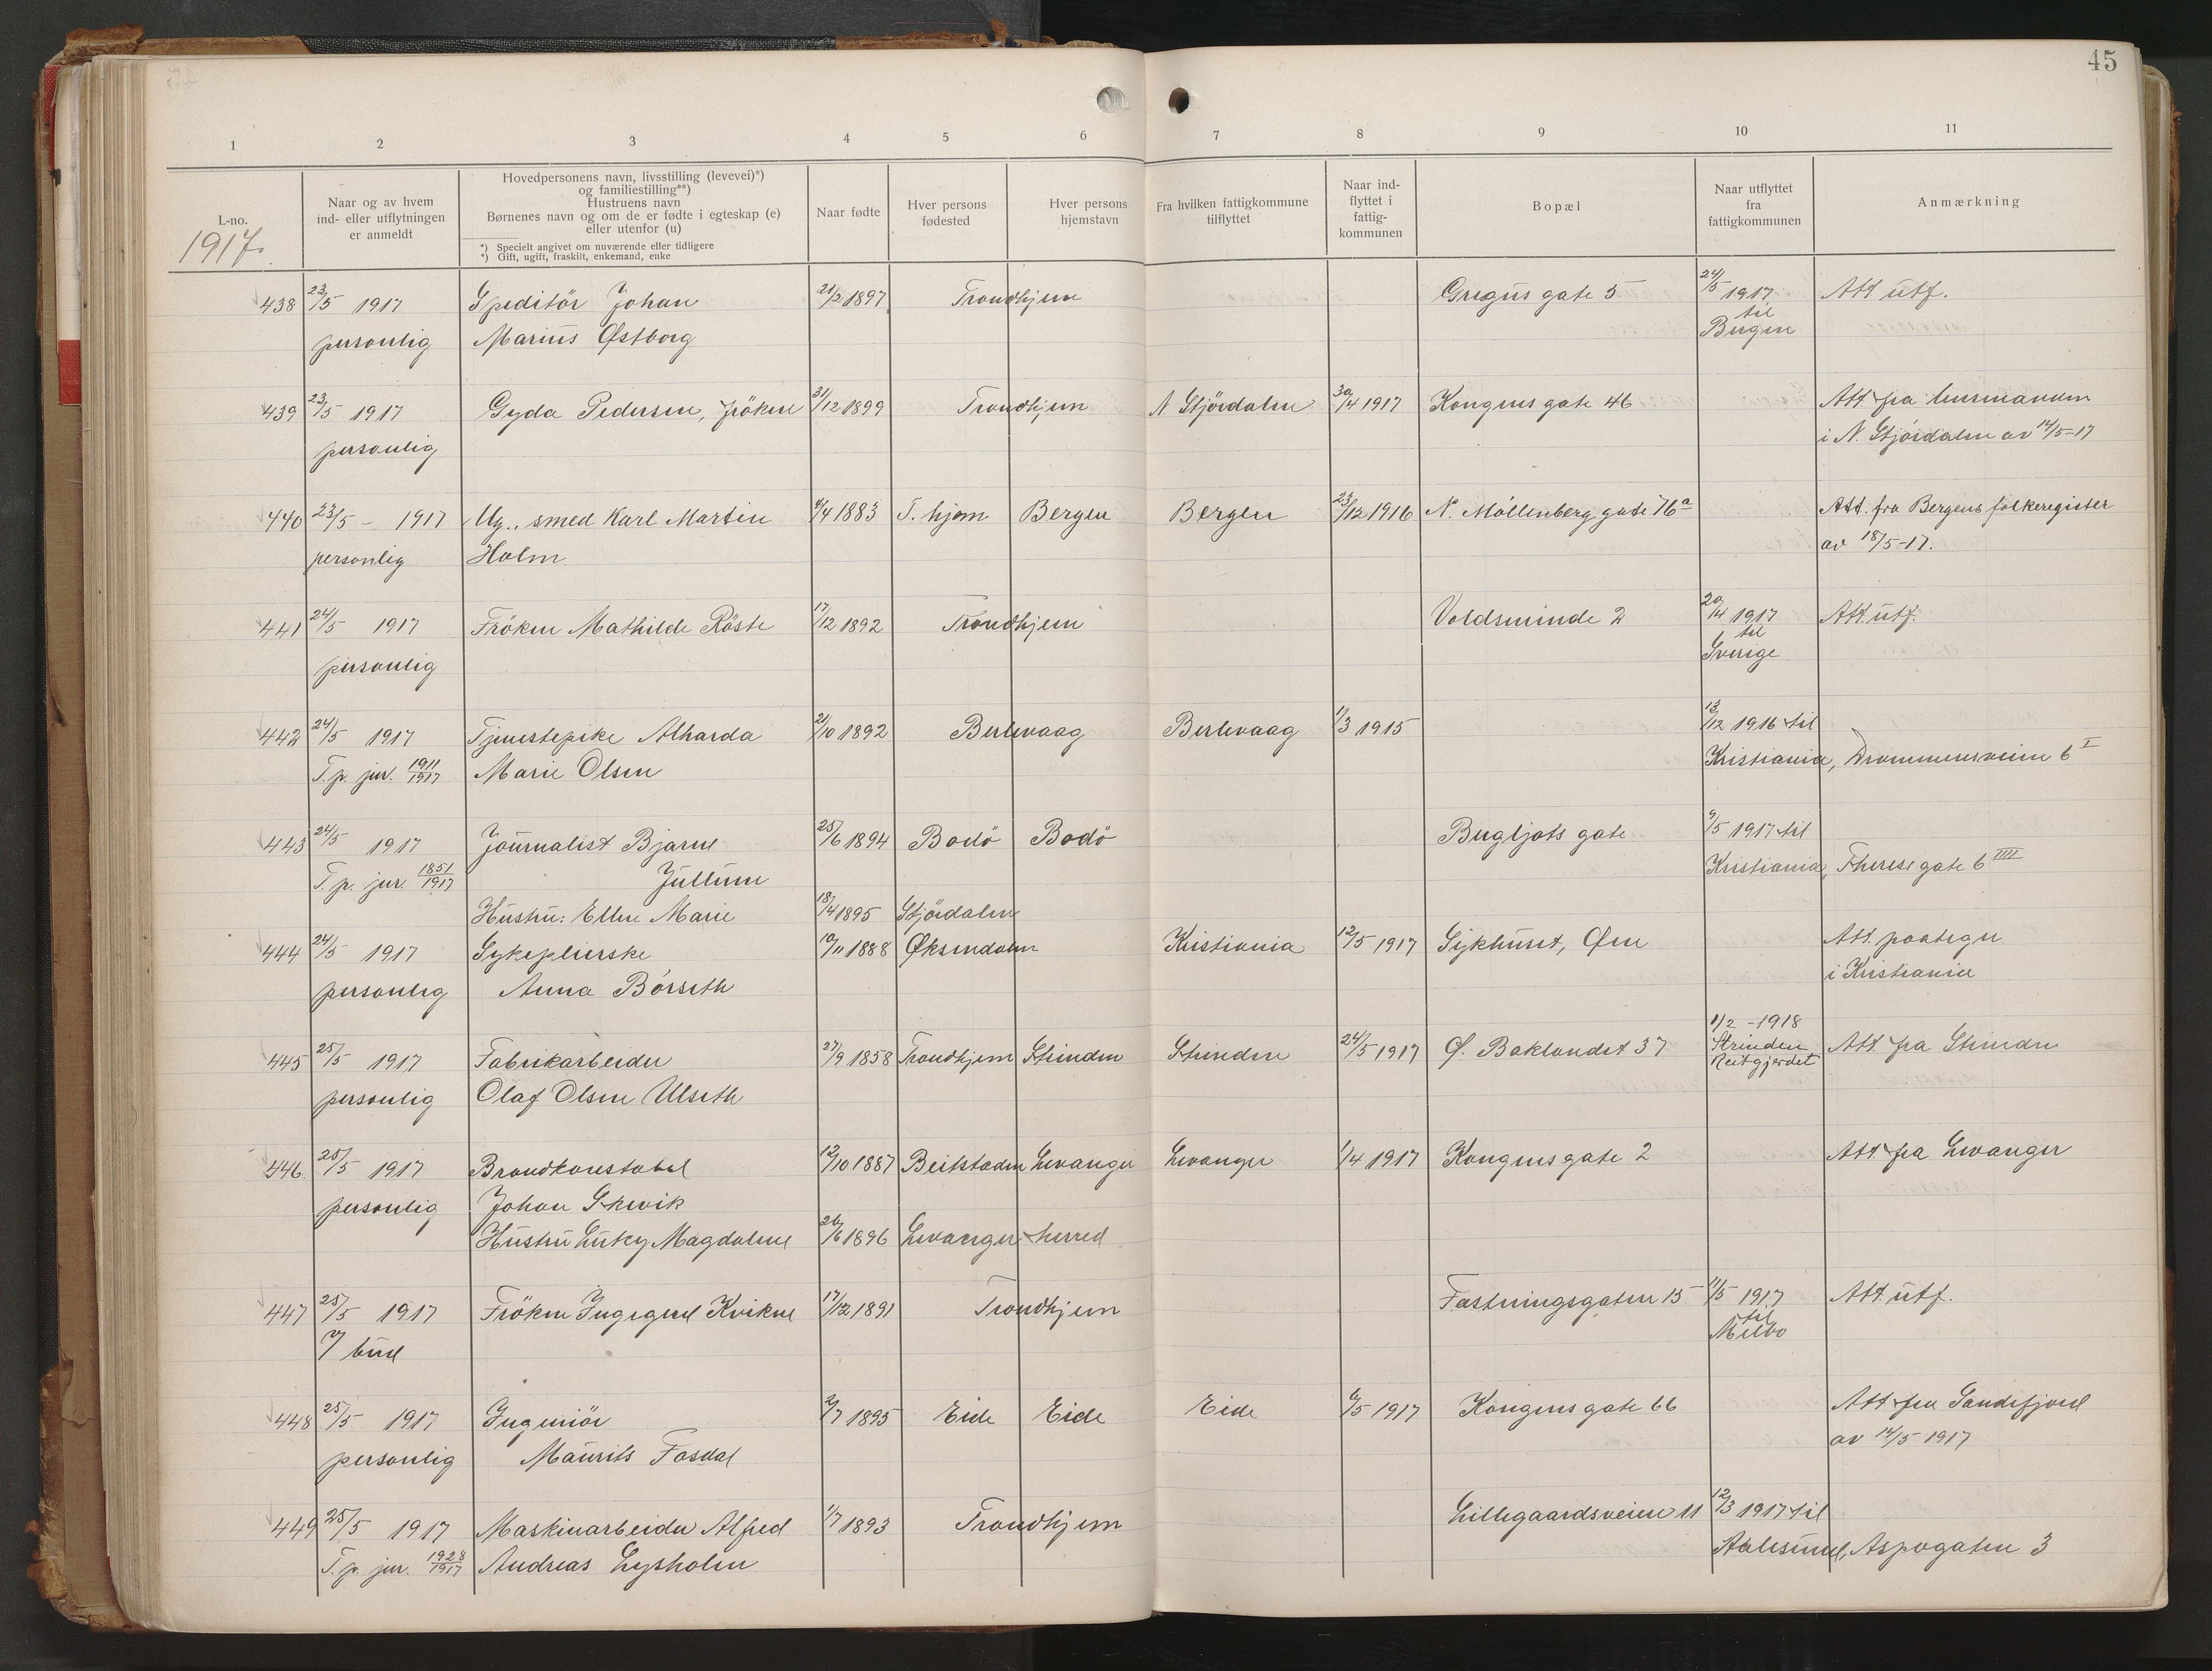 45
1 2 3 4 5 6 7 8 9 10 11
L-no.
1917.
Naar og av hvem
ind- eller utflytningen
er anmeldt
Hovedpersonens navn, livsstilling (levevei)*)
og familiestilling**)
Hustruens navn
Børnenes navn og om de er fødte i egteskap (e)
eller utenfor (u)
*) Specielt angivet om nuværende eller tidligere
*) Gift, ugift, fraskilt, enkemand, enke
Naar fødte
Hver persons
fødested
Hver persons
hjemstavn
Fra hvilken fattigkommune
tilflyttet
Naar ind-
flyttet i
fattig-
kommunen
Bopæl
Naar utflyttet
fra
fattigkommunen
Anmærkning
438 23/5 1917 Speditör Johan 21/2 1897 Trondhjem Gregus gate 5 24/5 1917 Att utf.
til
personlig Marius Østborg Bergen
439 23/5 1917 Gyda Pedersen, fröken 31/12 1899 Trondhjem N Stjördalen 30/4 1917 Kongens gate 46 Att fra lensmanden
personlig i N. Stjördalen av 14/5-17
440 23/5 - 1917 Ug., smed Karl Martin 4/4 1883 T.hjem Bergen Bergen 23/12 1916 N. Möllenberg gate 76a Att. fra Bergens folkeregister
personlig Holm av 18/5-17.
441 24/5 1917 Fröken Mathilde Röste 17/12 1892 Trondhjem Voldsminde 2 20/4 1917 Att. utf.
til
personlig Sverige
442 24/5 1917 Tjenestepike Alharda 21/10 1892 Berlevaag Berlevaag 1/3 1915 13/12 1916 til
T. p. jur. 1911/1917 Marie Olsen Kristiania, Drammensveien 6 I
443 24/5 1917 Journalist Bjarne 25/6 1894 Bodö Bodö Bergljots gate 9/5 1917 til
T. p. jur. 1851/1917 Jullum Kristiania, Theresegate 6 IIII
Hustru: Ellen Marie 18/4 1895 Stjördalen
444 24/5 1917 Sykepleierske 10/11 1888 Øksendalen Kristiania 12/5 1917 Sykhuset, Øen Att. paategn.
personlig Anna Börseth i Kristiania
1/2 - 1918
445 25/5 1917 Fabrikarbeider 27/9 1858 Trondhjem Strinden Strinden 24/5 1917 Ø. Baklandet 37 Strinden Att. fra Strinden
Reitgjerdet
personlig Olaf Olsen Ulseth
446 25/5 1917 Brandkonstabel 12/10 1887 Beitstaden Levanger Levanger 1/4 1917 Kongensgate 2 Att. fra Levanger
personlig Johan Skevik
Hustru Magdalene 20/6 1896 Levanger herred
447 25/5 1917 Fröken Ingegerd Kvikne 17/12 1891 Trondhjem Fæstningsgaten 15 11/5 1917 Att. utf.
til
7 bud Melbo
448 25/5 1917 Ingeniör 2/7 1895 Eide Eide Eide 6/5 1917 Kongens gate 66 Att fra Sandefjord
personlig Maurits Fosdal av 14/5 1917
449 25/5 1917 Maskinarbeider Alfred 1/7 1893 Trondhjem Lillegaardsveien 11 12/3 1917 til
T. p. jur. 1928/1917 Andreas Lysholm Aalesund, Aspøgaten 3